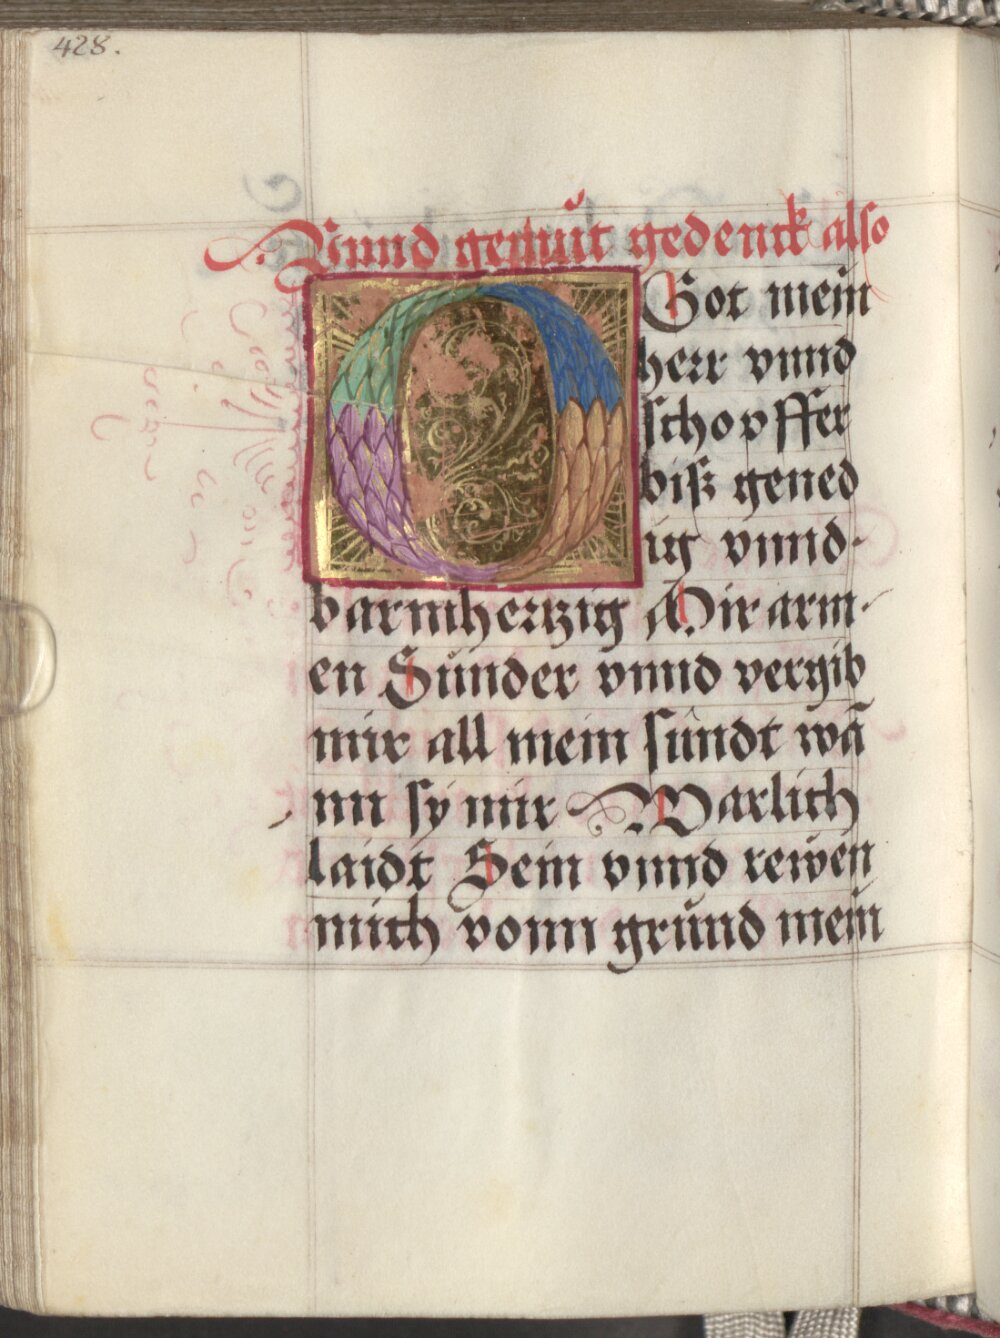 428.
Vnnd gemůt gedenck also
O Got mein
herr vnnd
schopffer
biß gened
ig vnnd-
barmhertzig Mir arm-
en Sünder vnnd vergib
mir all mein sündt wā
nn sy mir Warlich
laidt Sein vnnd rewen
mich vonn grund mein